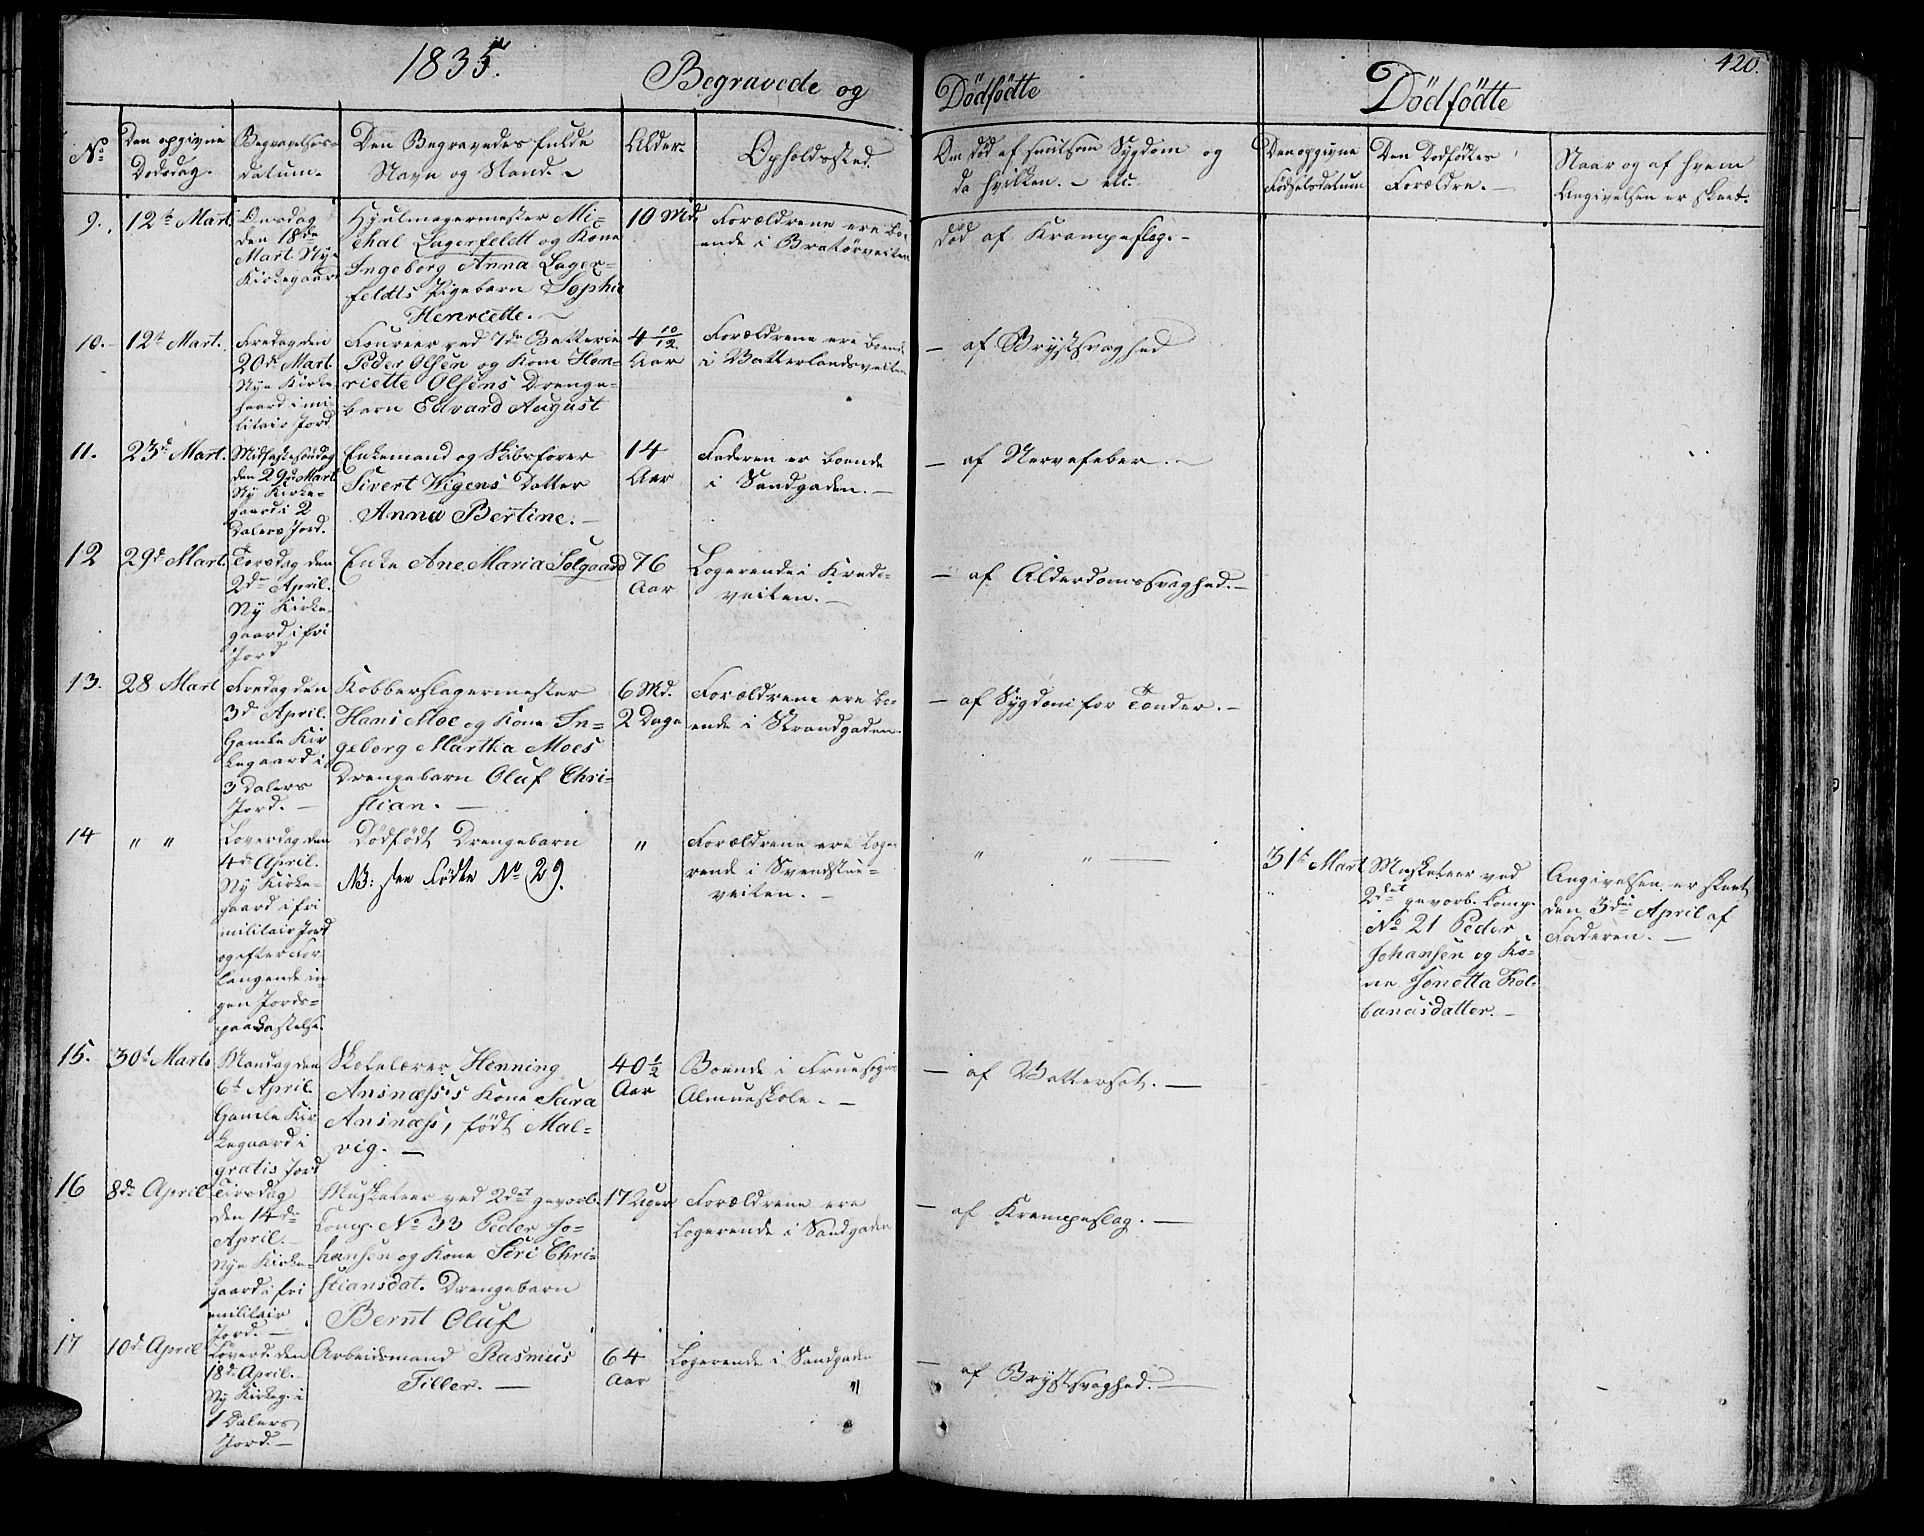 1835.
Begravede og
Dödfödte
Dödfödte
420.
No
Den opgivne
Dødsdag.
Begravelses-
datum.
Den Begravedes fulde
Navn og Stand.
Alder.
Opholdssted.
Om død af smitsom Sygdom og
da hvilken. etc.
Den opgivne
Fødselsdatum
Den Dödfödtes
Forældre.
Naar og af hvem
Angivelsen er skeet.
9.
12te Mart.
Onsdag
den 18de
Mart. Nye
Kirkegaard
Hjulmagermester Mi-
chal Lagerfeldt og Kone
Ingeborg Anna Lager-
feldts Pigebarn Sophie
Henriette.
10 Md.
Forældrene ere bo-
ende i Bratørveiten
død af Krampeslag.
10.
12te Mart.
Fredag den
20de Mart.
Nye Kirke-
gaard i mi-
litair Jord
Foureer ved 7de Batterie
Peder Olsen og Kone Hen-
riette Olsens Drenge-
barn Edvard August
4 10/12
Aar
Forældrene ere boende
i Vatterlandsveiten
— af Brystsvaghed
11.
23de Mart.
Midfastesöndag
den 29de Mart
Ny Kirke-
gaard i 2
Dalers Jord.
Enkemand og Skibsfører
Sivert Wigens Datter
Anna Bertine.
14
Aar
Faderen er boende
i Sandgaden.
— af Nervefeber.
12
29de Mart.
Torsdag den
2den April.
Ny Kirke-
gaard i fri
Jord
Enke Ane Maria Solgaard
76
Aar
Logerende i
veiten.
— af Alderdomssvaghed.
13.
28 Mart
Fredag den
3de April.
Gamle Kir
kegaard i
3 Dalers
Jord.
Kobberslagermester
Hans Moe og Kone In-
geborg Martha Moes
Drengebarn Oluf Chri-
stian.
6 Md.
2 Dage
Forældrene ere bo-
ende i Strandgaden.
— af Sygdom for Tænder.
14
" "
Løverdag den
4de April.
Ny Kirke-
gaard i fri
militair Jord
og efter For
langende in
gen Jords-
paakastelse.
Dödfödt Drengebarn
NB: see Fødte No 29.
"
Forældrene ere Loge-
rende i
veiten.
" "
31te Mart
Musketeer ved
2det gevorb. Comp.
No 21 Peder
Johansen og Ko-
ne Jonetta Kol-
banusdatter.
Angivelsen er skeet
den 3die April af
Faderen.
15.
30te Marts
Mandag den
6te April.
Gamle Kir
kegaard i
gratis Jord
Skolelærer Henning
Ansnæss's Kone Sara
Ansnæss, født Mal-
vig.
40 1/2
Aar
Boende i Fruesogns
Almueskole.
— af Vattersot.
16
8de April
Tirsdag
den 14de
April.
Nye Kirke-
gaard i fri
militair
Jord.
Musketeer ved 2det gevorb.
Comp. No 33 Peder Jo-
hansen og Kone Siri Chri-
stiansdat. Drengebarn
Bernt Oluf
17 Uger
Forældrene ere
Logerende i Sandgaden
— af Krampeslag.
17
10de April
Løverd. den
18de April.
Ny Kirkeg. i
1 Dalers
Jord.
Arbeidsmand Rasmus
Tiller.
64
Aar
Logerende i Sandgaden
"
— af Brystsvaghed.